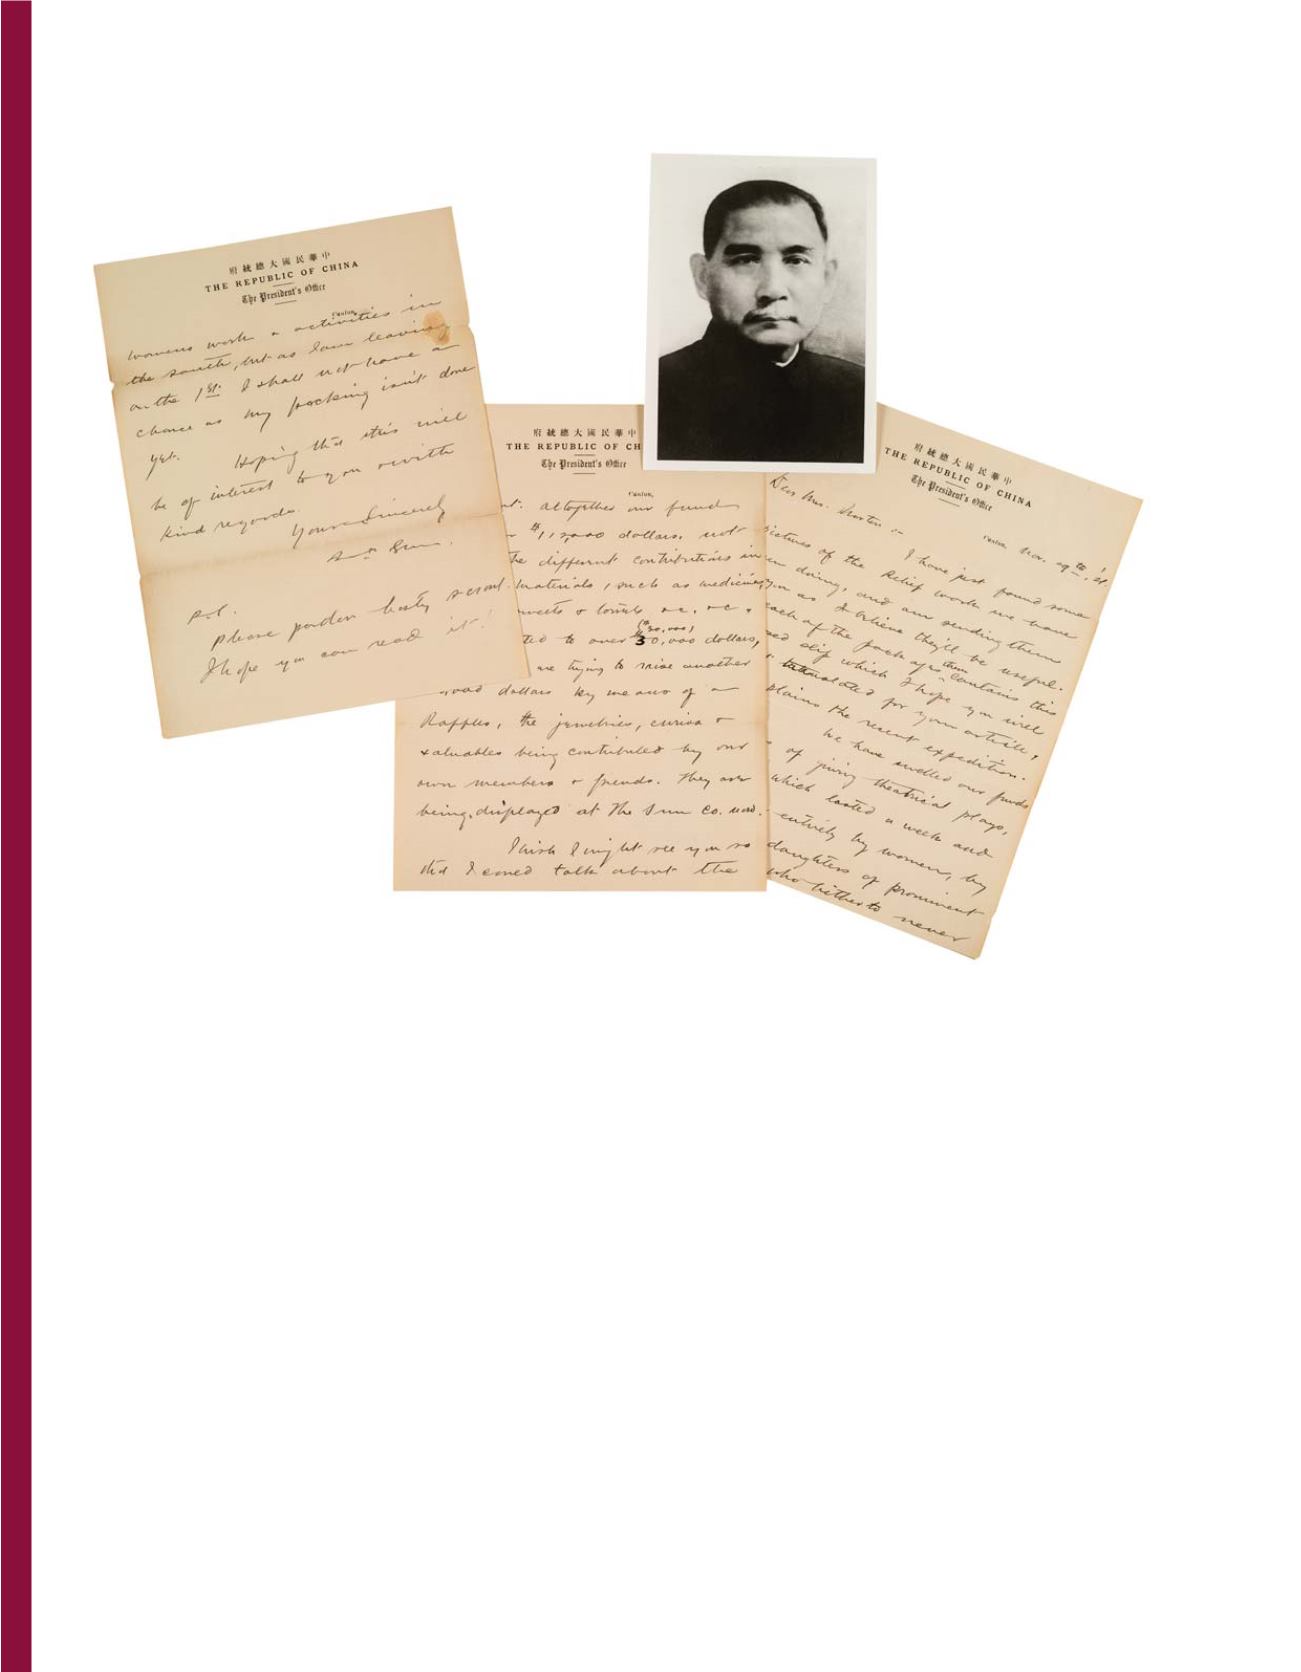 府統總大國民華中
THE REPUBLIC OF CHINA
The President's Office
Canton,
womens work & activities in
the south, but as I am leaving
on the 1st. I shall not have a
chance as my packing isn't done
yet. Hoping that this will
be of interest to you with
kind regards.
Yours Sincerely
Sun.
please pardon hasty scrawl.
I hope you can read it!
府統總大國民華中
THE REPUBLIC OF CH
The President's Office
Canton,
altogether our funds
dollars, not
the different contributions in
materials, such as medicine,
&c. &c.
ted to over 30,000 dollars,
are trying to raise another
dollars by means of a
Raffles, the jewelries, curios &
valuables being contributed by our
own members & friends. They are
being displayed at the Sun Co. now.
I wish I might see you so
that I could talk about the
府統總大國民華中
THE REPUBLIC OF CHINA
The President's Office
Canton, Nov. 29th,
Dear Mrs.
I have just found some
pictures of the Relief work we have
en doing, and am sending them
you as I believe they'll be useful.
each of the packages contains this
ed slip which I hope you will
translated for your article,
plains the recent expedition.
We have swelled our funds
of giving theatrical plays,
which lasted a week and
entirely by women, by
daughters of prominent
who hitherto never